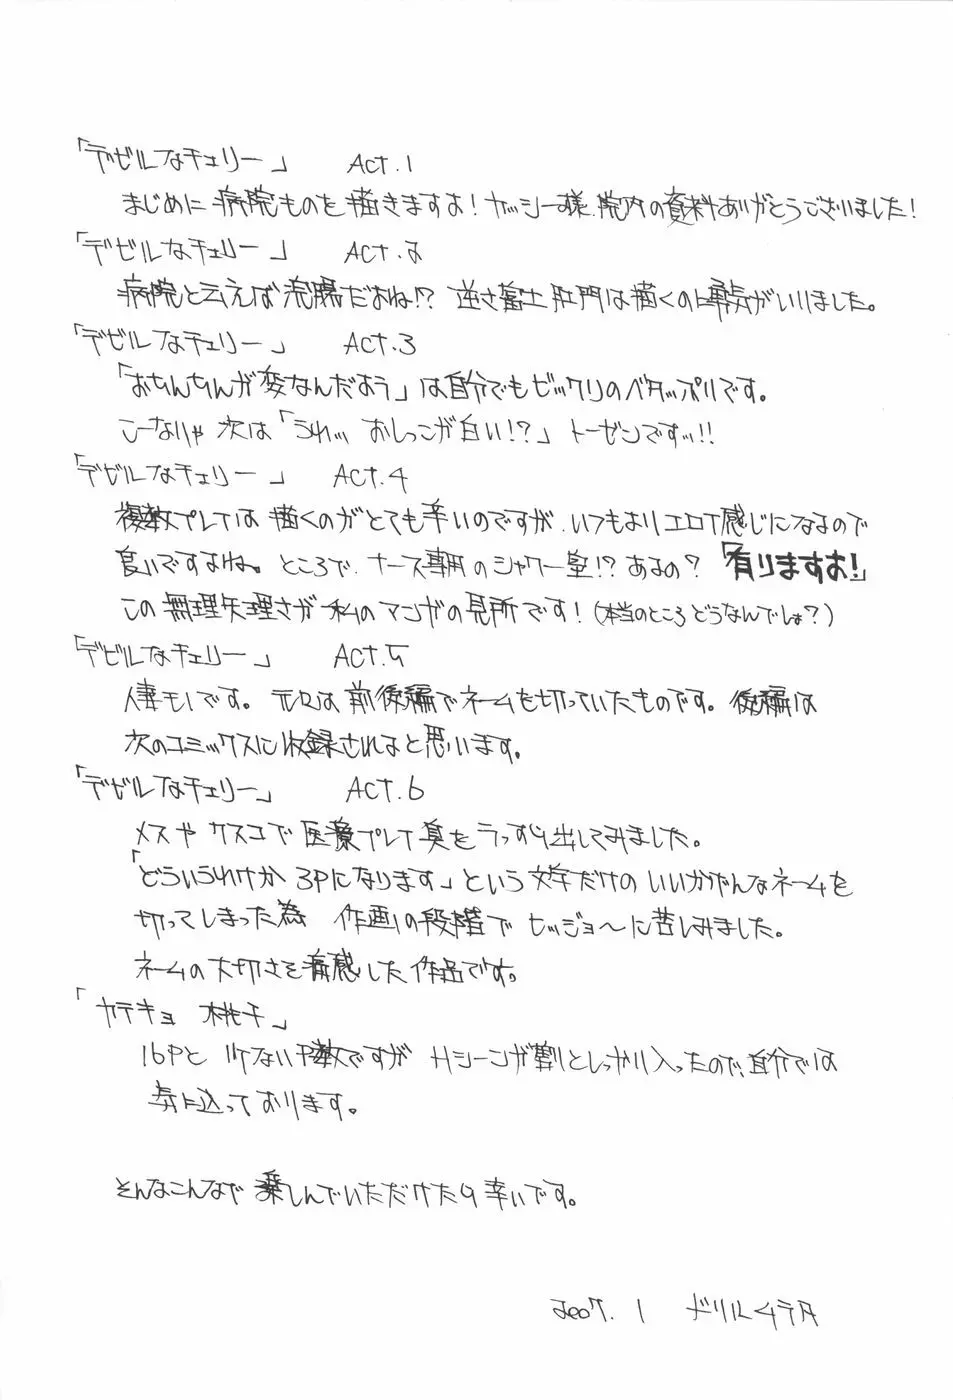 「デビルなチェリー」 Act.1
まじめに病院ものを描きますよ！ヤッシー様、院内の資料ありがとうございました！
「デビルなチェリー」 Act.2
病院と云えば浣腸だよね!? 逆さ富士肛門は描くのに勇気がいりました。
「デビルなチェリー」 Act.3
「おちんちんが変なんだよう」は自分でもビックリのベタップリです。
こーなりゃ次は「うわッ おしっこが白い!?」トーゼンですッ!!
「デビルなチェリー」 Act.4
複数プレイは描くのがとても辛いのですが、いつもよりエロイ感じになるので
良いですよね。ところで、ナース専用のシャワー室!? あるの？「有りますよ！」
この無理矢理さが私のマンガの見所です！(本当のところどうなんでしょ？)
「デビルなチェリー」 Act.5
人妻モノです。元々は前後編でネームを切っていたものです。後編は
次のコミックスに収録されると思います。
「デビルなチェリー」 Act.6
メスやクスコで医療プレイ臭をうっすら出してみました。
「どういうわけか3Pになります」という文字だけのいいかげんなネームを
切ってしまった為 作画の段階でヒッジョ〜に苦しみました。
ネームの大切さを痛感した作品です。
「カテキョ 桃子」
16Pと少ないP数ですが Hシーンが割としっかり入ったので、自分では
気に込っております。
そんなこんなで楽しんでいただけたら幸いです。
2007.1 ドリルムラタ